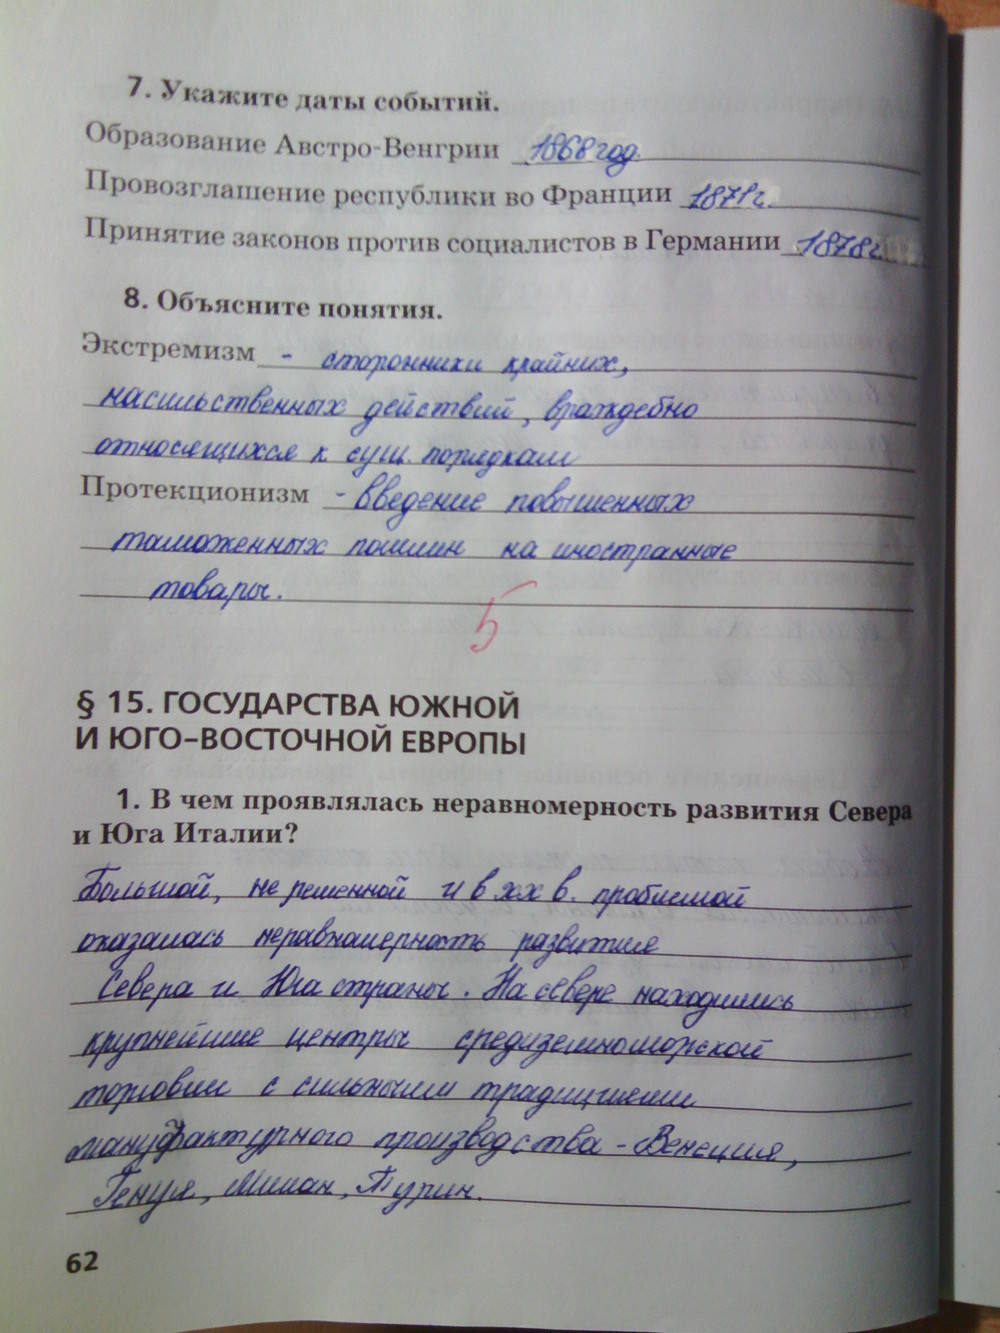 7. Укажите даты событий.
Образование Австро-Венгрии 1868 год.
Провозглашение республики во Франции 1871 г.
Принятие законов против социалистов в Германии 1878 г.
8. Объясните понятия.
Экстремизм - сторонники крайних,
насильственных действий, враждебно
относящихся к сущ. порядкам
Протекционизм - введение повышенных
таможенных пошлин на иностранные
товары.
5
§ 15. ГОСУДАРСТВА ЮЖНОЙ
И ЮГО-ВОСТОЧНОЙ ЕВРОПЫ
1. В чем проявлялась неравномерность развития Севера
и Юга Италии?
Большой, не решенной и в XX в. проблемой
оказалась неравномерность развития
Севера и Юга страны. На севере находились
крупнейшие центры средиземноморской
торговли с сильными традициями
мануфактурного производства - Венеция,
Генуя, Милан, Турин.
62